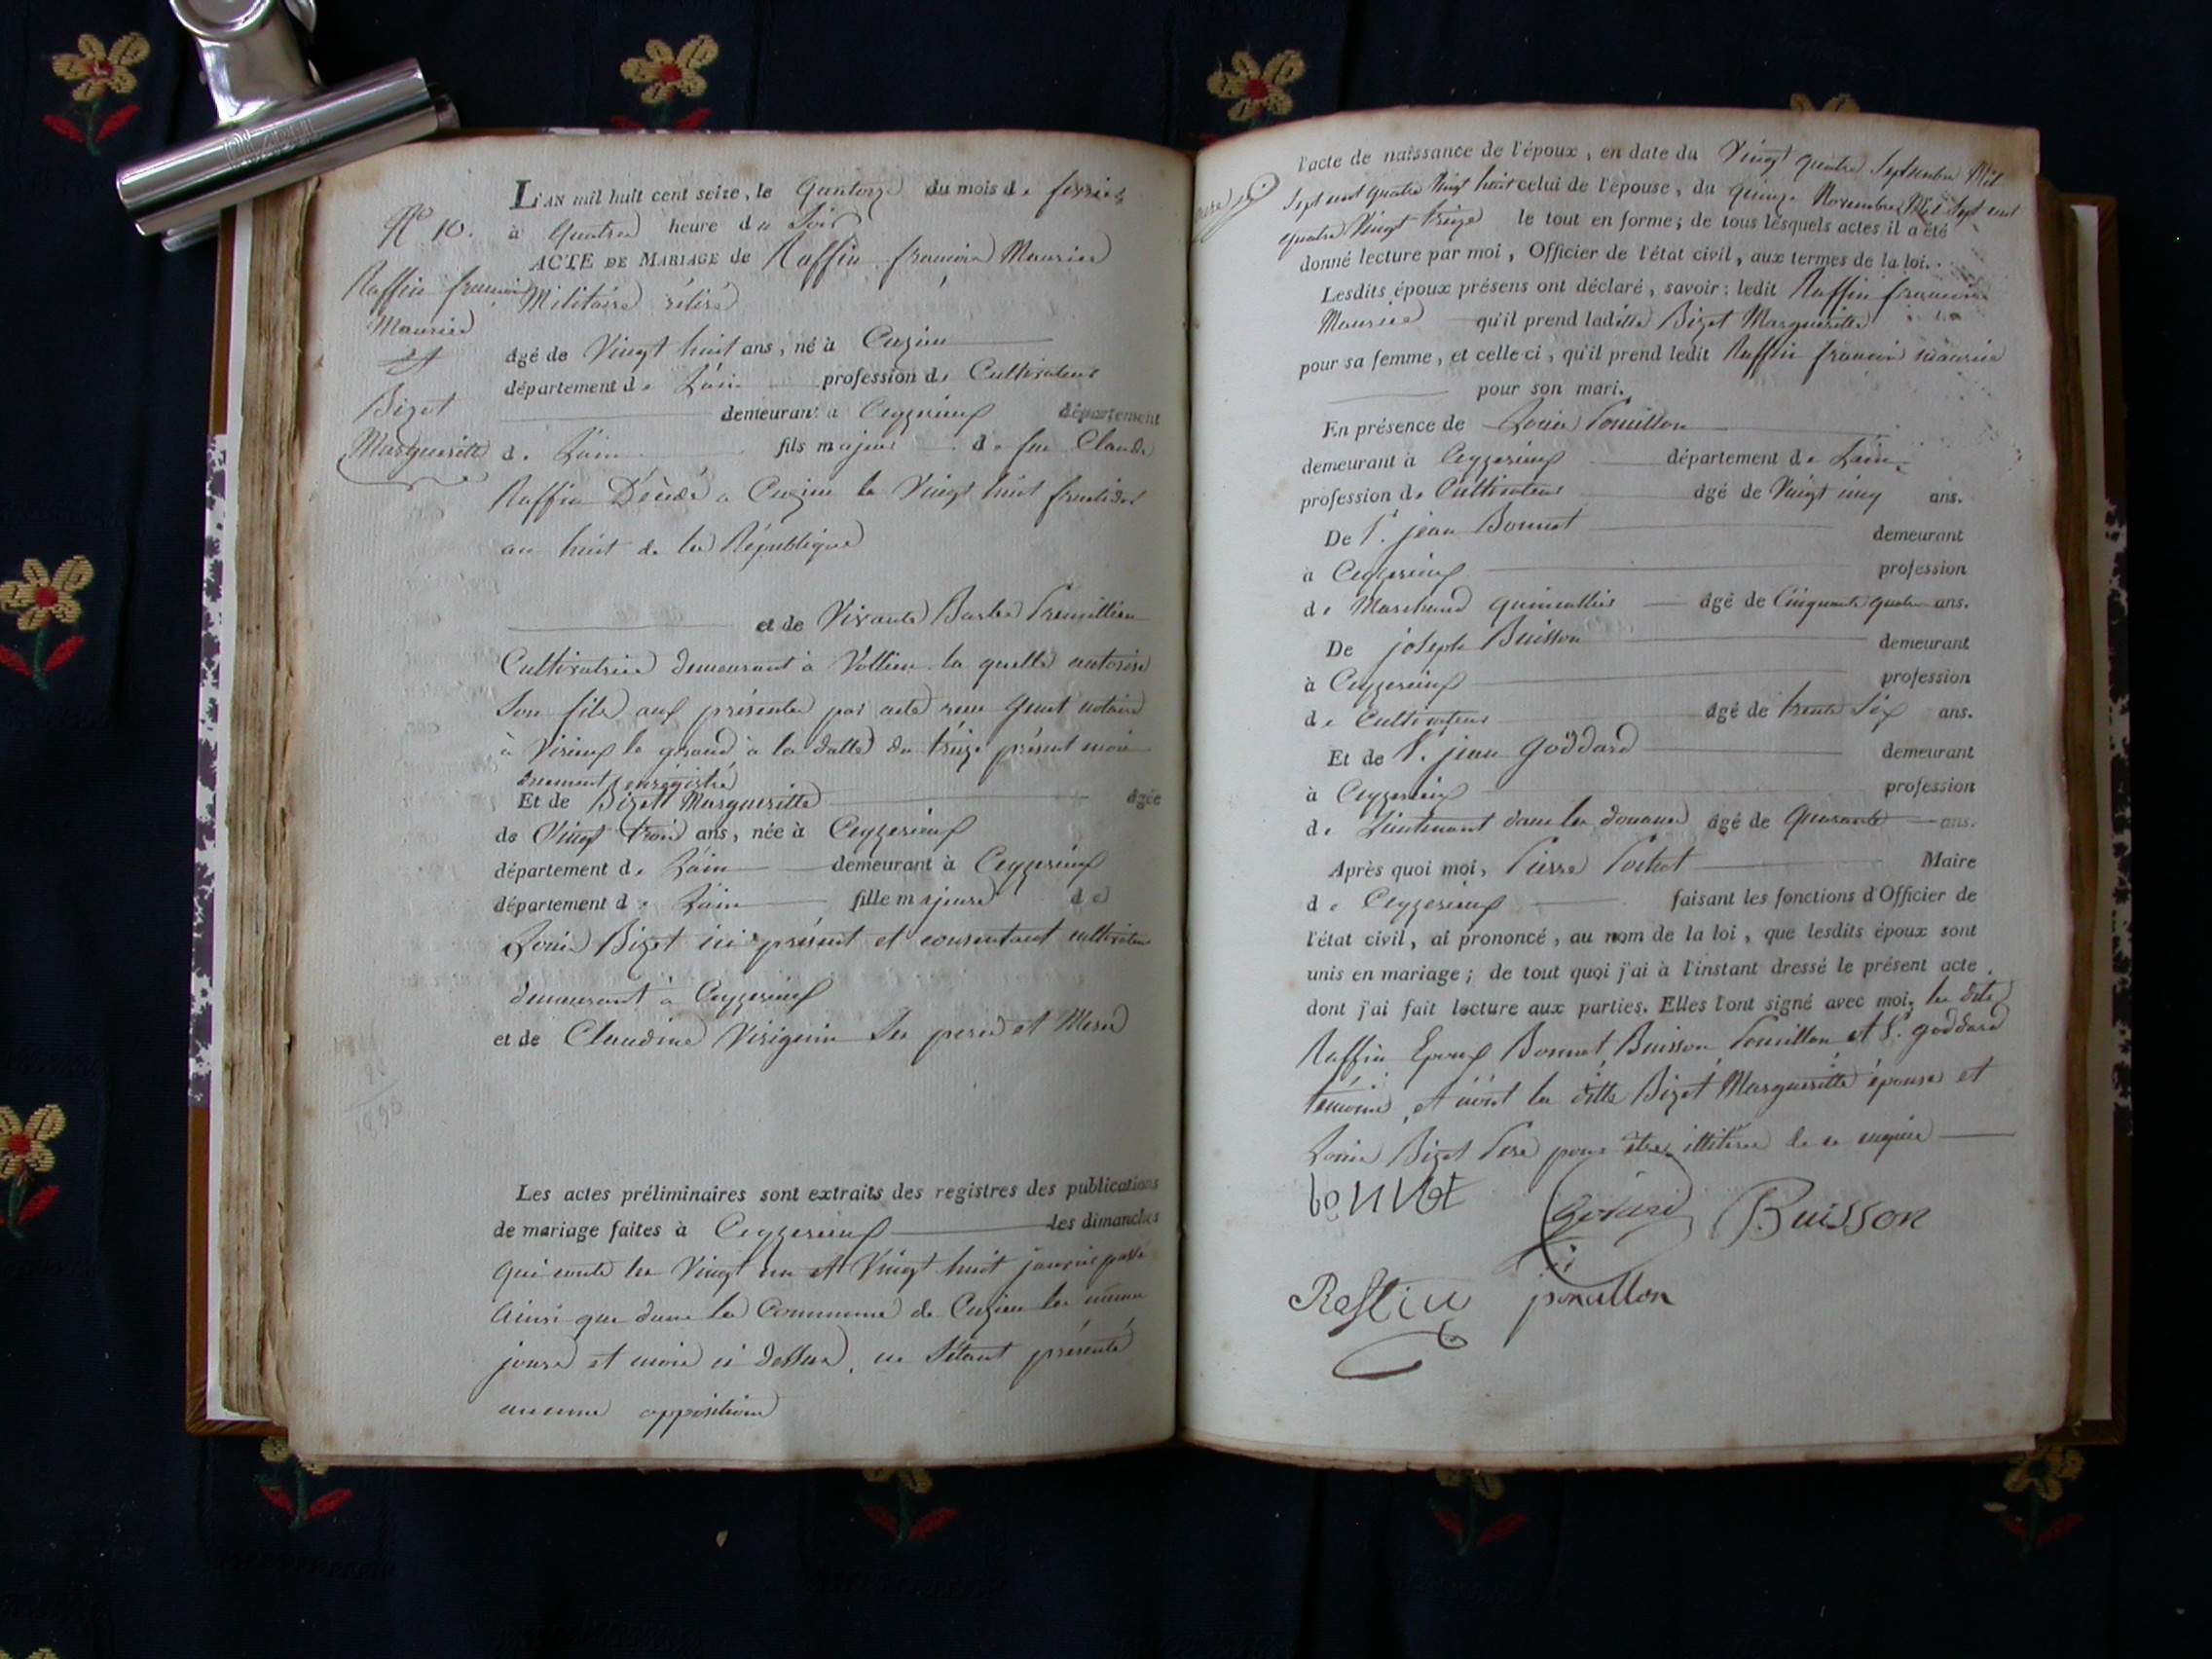 L'AN mil huit cent seize, le Quatorze du mois de fevrier
N° 10. à Quatre heure du Soir
ACTE DE MARIAGE de Raffin francois Maurice
Raffin francois
Maurice
et
Bizet
Margueritte
Militaire rétiré
âgé de Vingt huit ans, né à Cuzieu
département de Lain profession de Cultivateur
demeurant à Ceyzerieux département
de Lain fils majeur de feu Claude
Raffin Décédé a Cuzieu le Vingt huit fructidor
an huit de la République
et de Vivante Barbe
Cultivatrice demeurant à Vollien la quelle autorise
Son fils aux présentes par acte recu notaire
à Virieux le grand à la datte du treize présent mois
duement enrégistré
Et de Bizet Margueritte âgée
de Vingt trois ans, née à Ceyzerieux
département de Lain demeurant à Ceyzerieux
département de Lain fille majeure de
Louis Bizet ici présent et consentant cultivateur
demeurant à Ceyzerieux
et de Claudine Virignin Ses pere et Mere
Les actes préliminaires sont extraits des registres des publications
de mariage faites à Ceyzerieux les dimanches
les Vingt un et Vingt huit janvier passé
Ainsi que dans la Commune de Cuzieu les même
jours et mois ci dessus, ne S'étant présenté
aucune opposition
l'acte de naissance de l'époux, en date du Vingt quatre Septembre Mil
Sept cent quatre Vingt huit celui de l'épouse, du quinze Novembre Mil Sept cent
quatre Vingt treize le tout en forme; de tous lesquels actes il a été
donné lecture par moi, Officier de l'état civil, aux termes de la loi.
Lesdits époux présens ont déclaré, savoir: ledit Raffin francois
Maurice qu'il prend ladite Bizet Margueritte
pour sa femme, et celle-ci, qu'il prend ledit Raffin francois maurice
pour son mari.
En présence de Louis Pouillon
demeurant à Ceyzerieux département de Lain
profession de Cultivateur âgé de Vingt cinq ans.
De S. jean Bonnet demeurant
à Ceyzerieux profession
de Marchand quincallier âgé de Cinquante quatre ans.
De joseph Buisson demeurant
à Ceyzerieux profession
de Cultivateur âgé de trente Six ans.
Et de S. jean Goddard demeurant
à Ceyzerieux profession
de Lieutenant dans les douanes âgé de Quarante ans.
Après quoi moi, Pierre Pochet Maire
de Ceyzerieux faisant les fonctions d'Officier de
l'état civil, ai prononcé, au nom de la loi, que lesdits époux sont
unis en mariage; de tout quoi j'ai à l'instant dressé le présent acte
dont j'ai fait lecture aux parties. Elles l'ont signé avec moi, les dits
Raffin Epoux Bonnet, Buisson Pouillon et S. goddard
témoins, et non la ditte Bizet Margueritte épouse et
Louis Bizet Pere pour être illitéré de ce enquis
bonnet
Buisson
Raffin pouillon